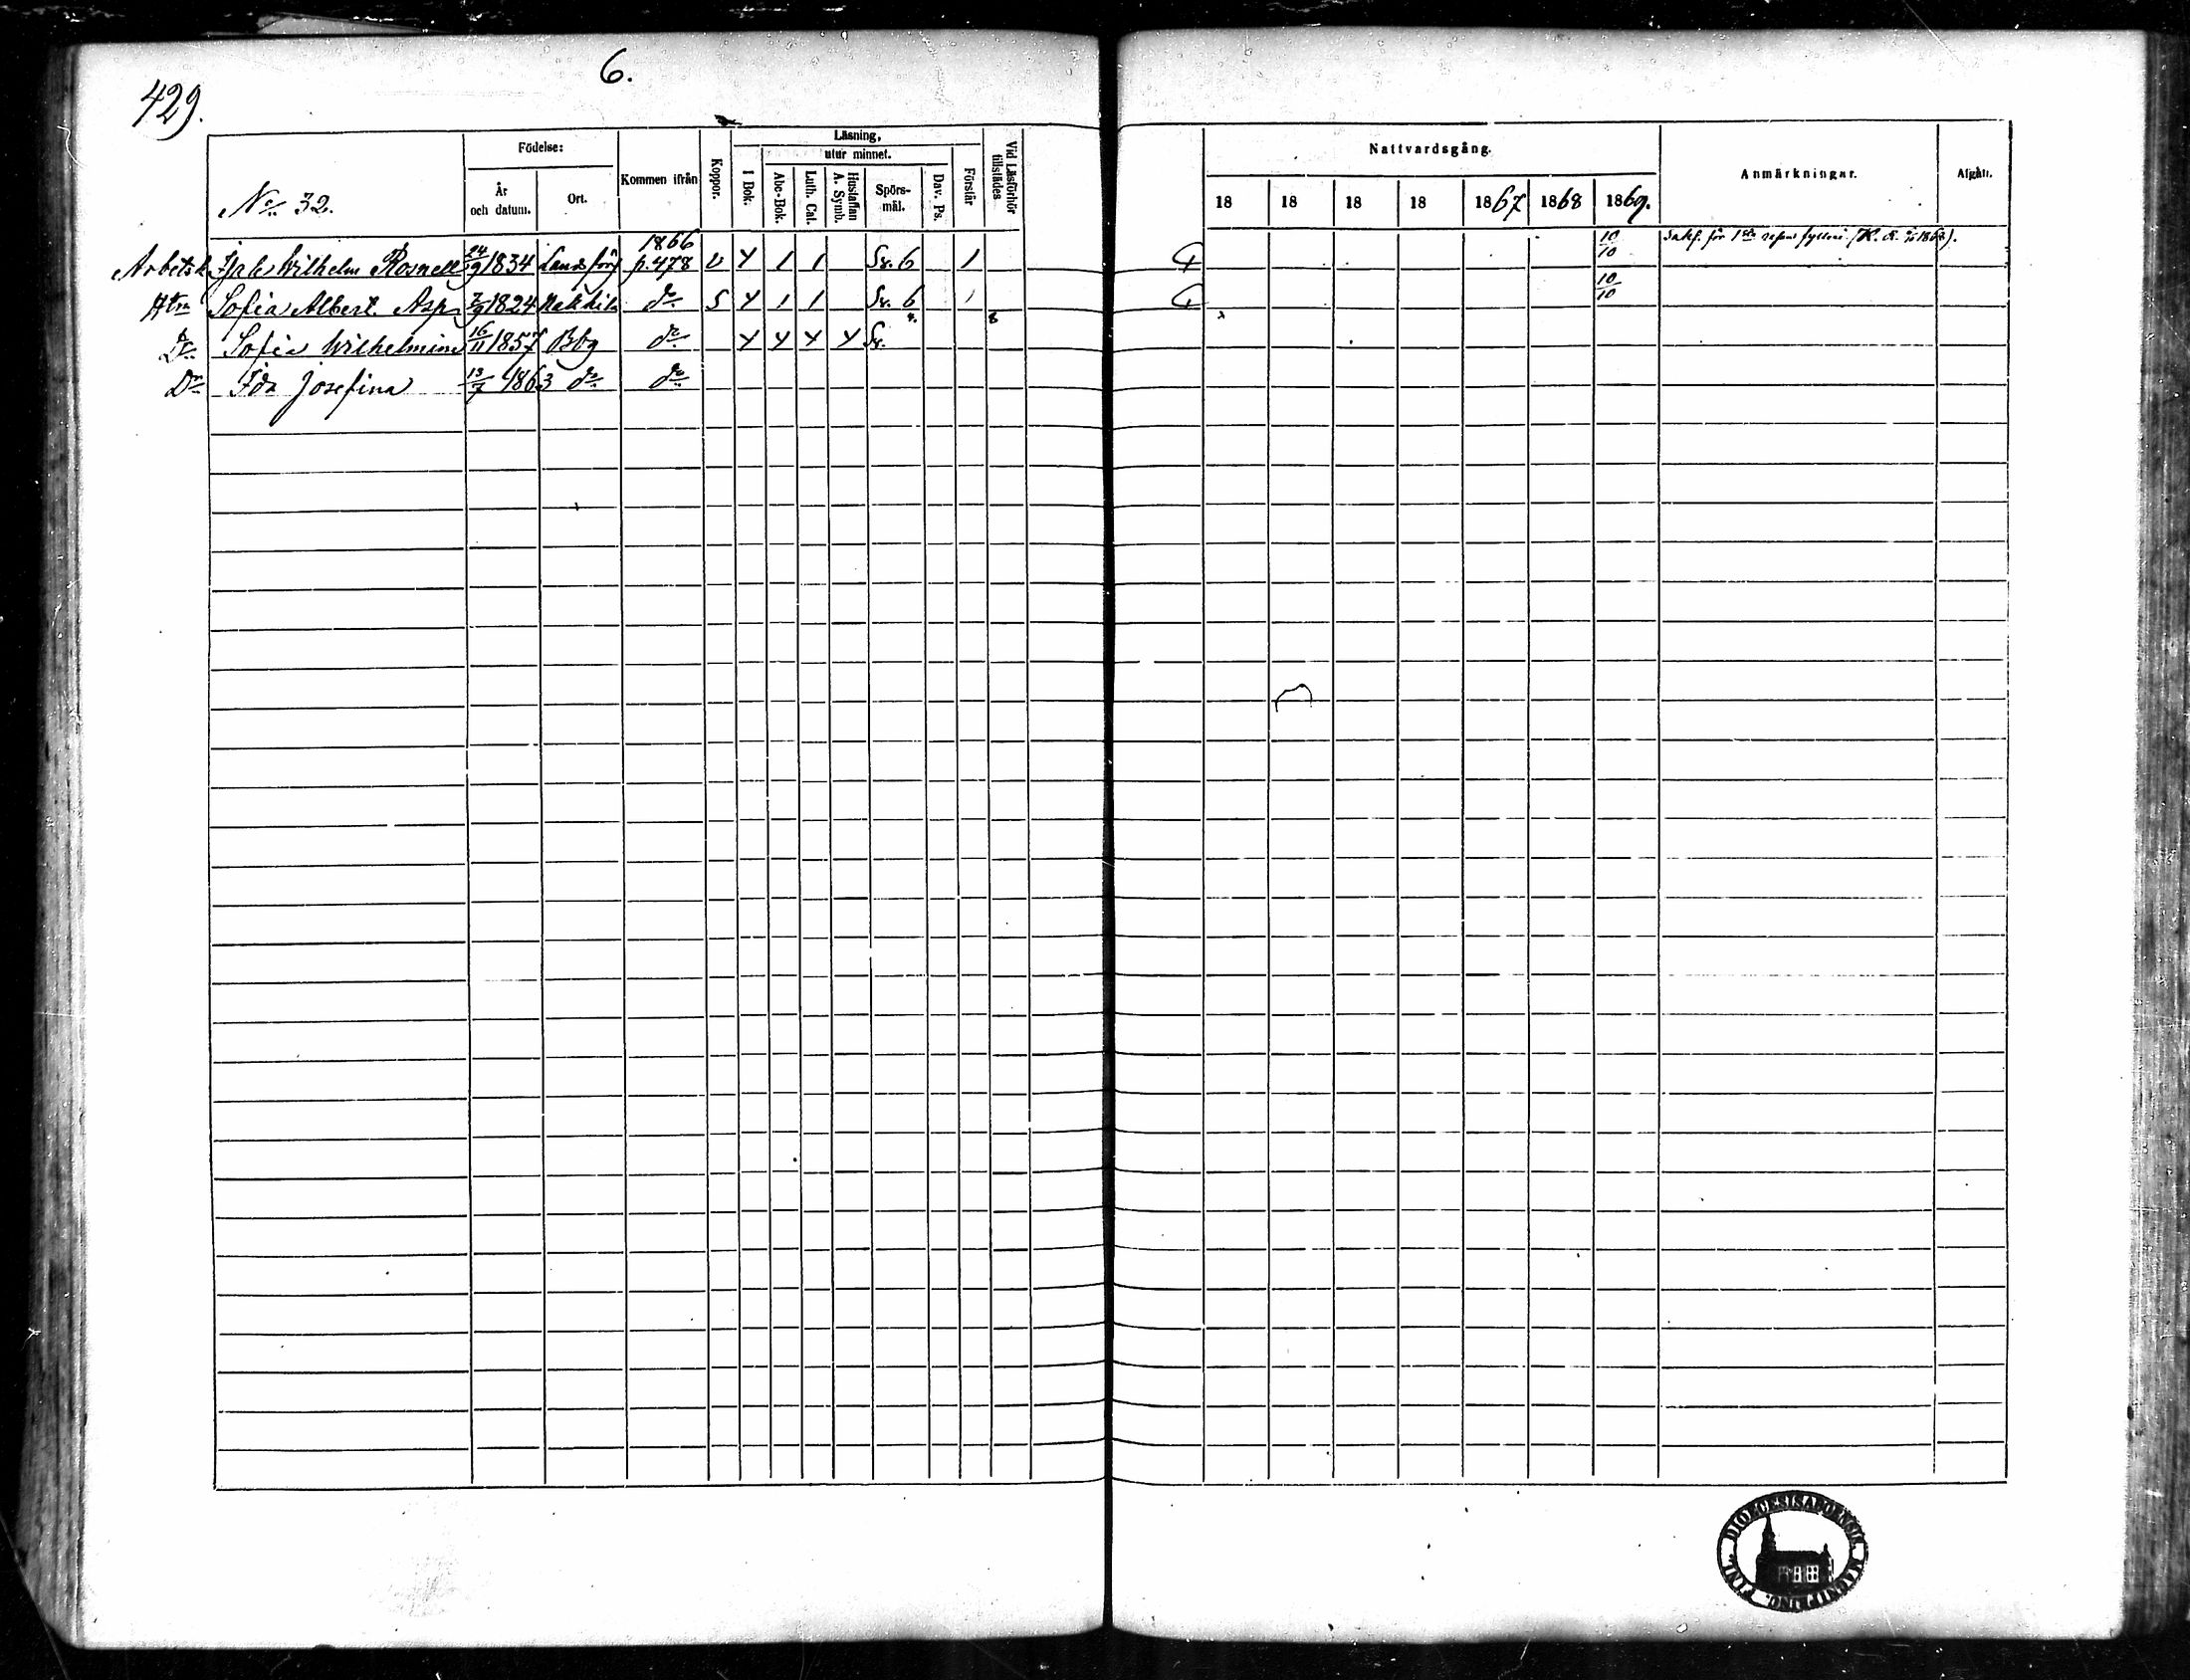 6.
429.
No. 32.
Födelse:
År och datum.
Ort.
Kommen ifrån
Koppor.
Läsning,
utur minnet.
I Bok.
Abc-Bok.
Luth. Cat.
Hustaflan A. Symb.
Spörs-mål.
Dav. Ps.
Förstår
Vid Läsförhör tillstädes
Nattvardsgång.
18 18 18 18 1867 1868 1869.
Anmärkningar.
Afgått.
1866
Arbetsk. Wilhelm Rosnell 24/9 1834 Landsförs p. 478 v Y 1 1 Sv. 6 1 10/10 Sakf. för 1sta resan fylleri
Hru Sofia Albert. Asp 7/9 1824 Nakkila do S Y 1 1 Sv. 6 1 10/10
Dr Sofia Wilhelmina 16/11 1857 Bbg do Y Y Y Y Sv.
Dr Ida Josefina 13/7 1863 do do
FINL. DIOECESIS ABOENSIS. MAGNI PRINC.